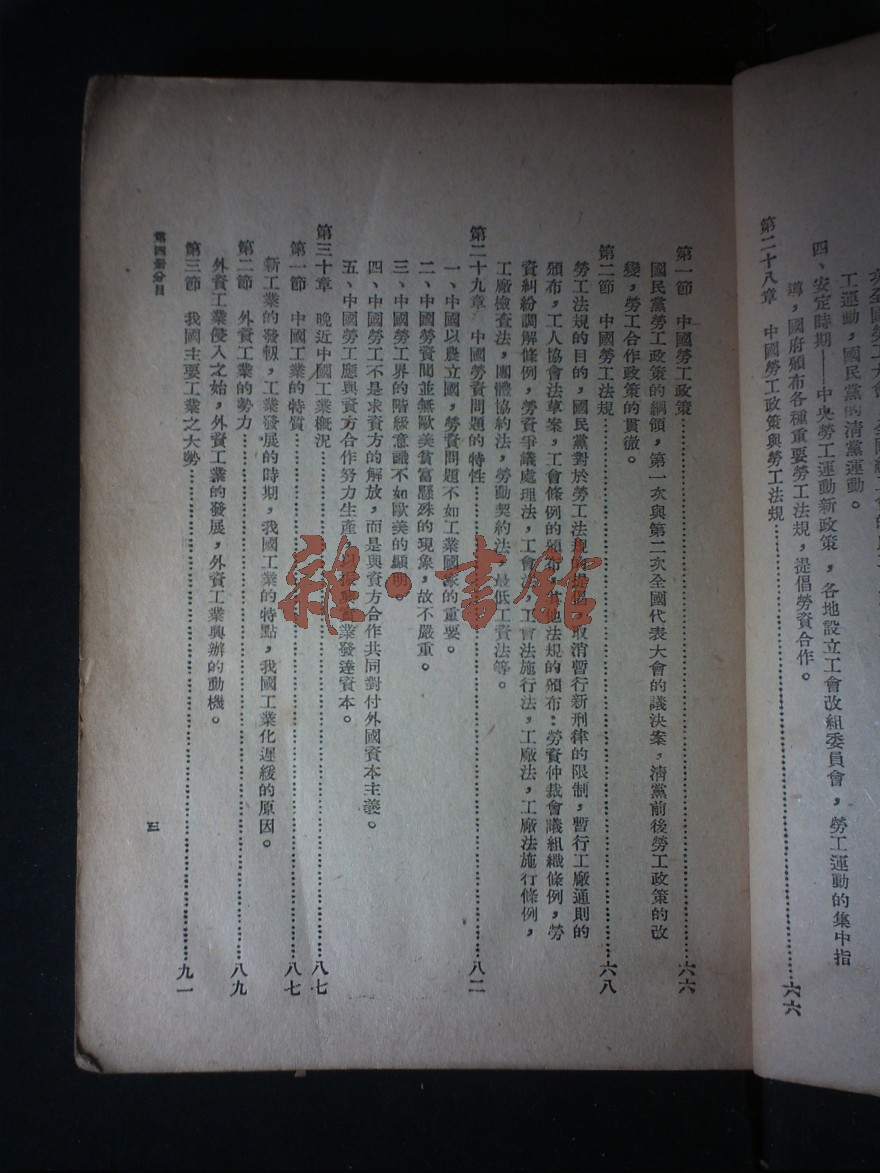 工運動，國民黨的清黨運動。
四、安定時期——中央勞工運動新政策，各地設立工會改組委員會，勞工運動的集中指
導，國府頒布各種重要勞工法規，提倡勞資合作。
第二十八章　中國勞工政策與勞工法規……六六
第一節　中國勞工政策……六六
國民黨勞工政策的綱領，第一次與第二次全國代表大會的議決案，清黨前後勞工政策的改
變，勞工合作政策的貫徹。
第二節　中國勞工法規……六八
勞工法規的目的，國民黨對於勞工法規的提倡，取消暫行新刑律的限制，暫行工廠通則的
頒布，工人協會法草案，工會條例的頒布，其他法規的頒布：勞資仲裁會議組織條例，勞
資糾紛調解條例，勞資爭議處理法，工會法，工會法施行法，工廠法，工廠法施行條例，
工廠檢查法，團體協約法，勞動契約法，最低工資法等。
第二十九章　中國勞資問題的特性……八二
一、中國以農立國，勞資問題不如工業國家的重要。
二、中國勞資間並無歐美貧富懸殊的現象，故不嚴重。
三、中國勞工界的階級意識不如歐美的顯明。
四、中國勞工不是求資方的解放，而是與資方合作共同對付外國資本主義。
五、中國勞工應與資方合作努力生產，以業發達資本。
第三十章　晚近中國工業概況……八七
第一節　中國工業的特質……八七
新工業的發軔，工業發展的時期，我國工業的特點，我國工業化遲緩的原因。
第二節　外資工業的勢力……八九
外資工業侵入之始，外資工業的發展，外資工業興辦的動機。
第三節　我國主要工業之大勢……九一
第四册分目
三
雜·書館